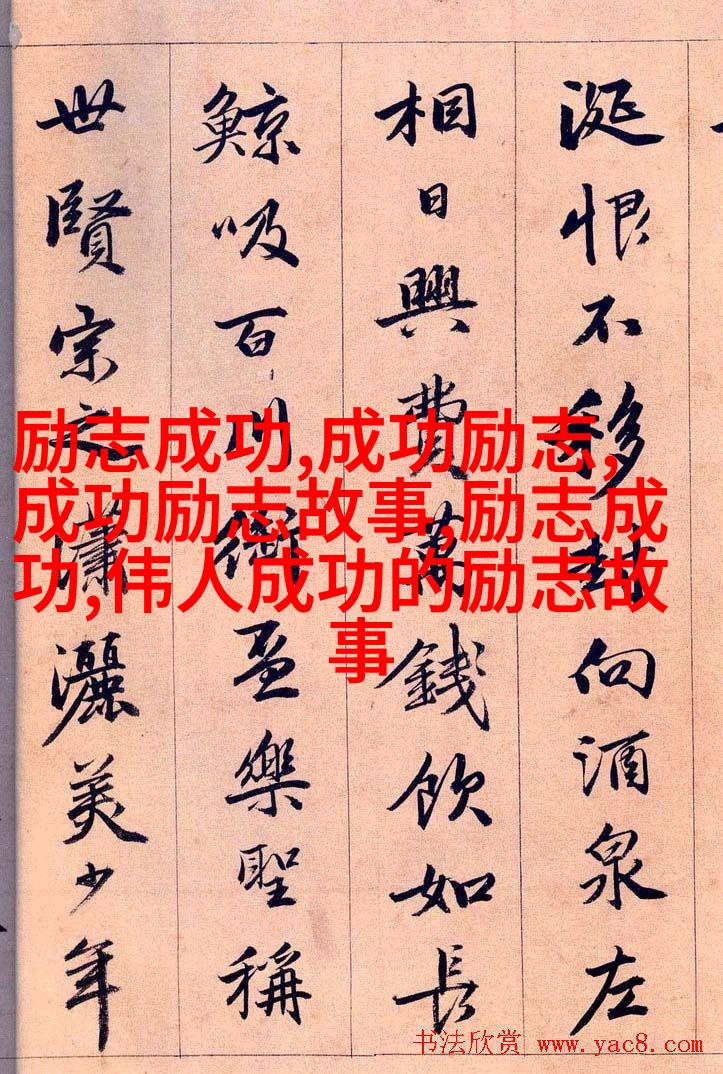 涎恨不移封向酒泉左
相日興費萬錢飲如長
鯨吸百川銜盃樂聖稱
世賢宗之瀟灑美少年
励志成功,成功励志,
成功励志故事,励志成
功,伟人成功的励志故
事
书法欣赏 www.yac8.com